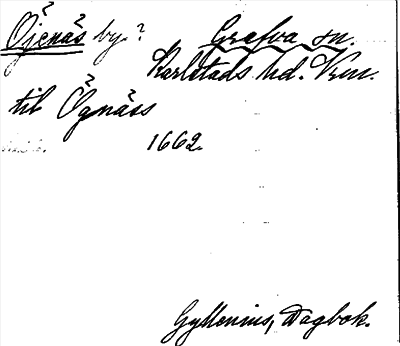 Öjenäs by? Grefva sn.
Karlstads hd. Vrm.
til Ögnäss
1662.
Gyllenius, Dagbok.